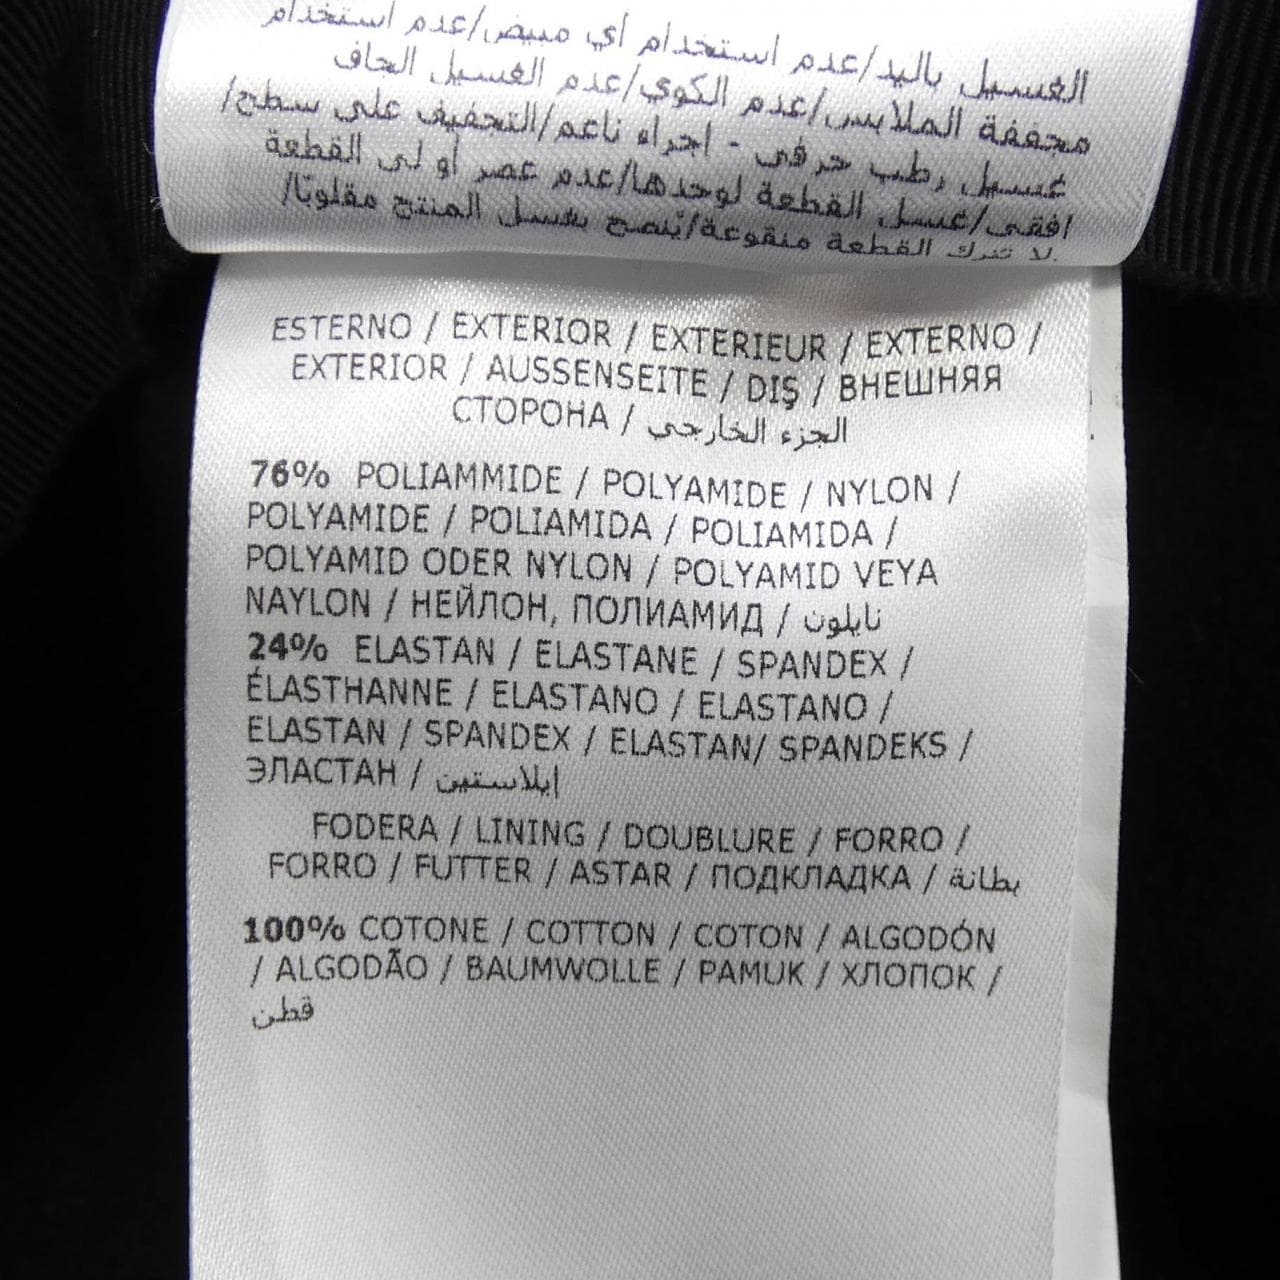 الغسيل باليد/عدم استخدام أي مبيض/عدم استخدام
مجففة الملابس/عدم الكوي/عدم الغسيل الجاف
غسيل رطب حرفي - اجراء ناعم/التجفيف على سطح/
افقي/غسل القطعة لوحدها/عدم عصر أو لي القطعة
لا تترك القطعة منقوعة/يُنصح بغسل المنتج مقلوبًا/.
ESTERNO / EXTERIOR / EXTERIEUR / EXTERNO /
EXTERIOR / AUSSENSEITE / DIŞ / ВНЕШНЯЯ
СТОРОНА / الجزء الخارجي
76% POLIAMMIDE / POLYAMIDE / NYLON /
POLYAMIDE / POLIAMIDA / POLIAMIDA /
POLYAMID ODER NYLON / POLYAMID VEYA
NAYLON / НЕЙЛОН, ПОЛИАМИД / نايلون
24% ELASTAN / ELASTANE / SPANDEX /
ÉLASTHANNE / ELASTANO / ELASTANO /
ELASTAN / SPANDEX / ELASTAN/ SPANDEKS /
ЭЛАСТАН / إيلاستين
FODERA / LINING / DOUBLURE / FORRO /
FORRO / FUTTER / ASTAR / ПОДКЛАДКА / بطانة
100% COTONE / COTTON / COTON / ALGODÓN
/ ALGODÃO / BAUMWOLLE / PAMUK / ХЛОПОК /
قطن